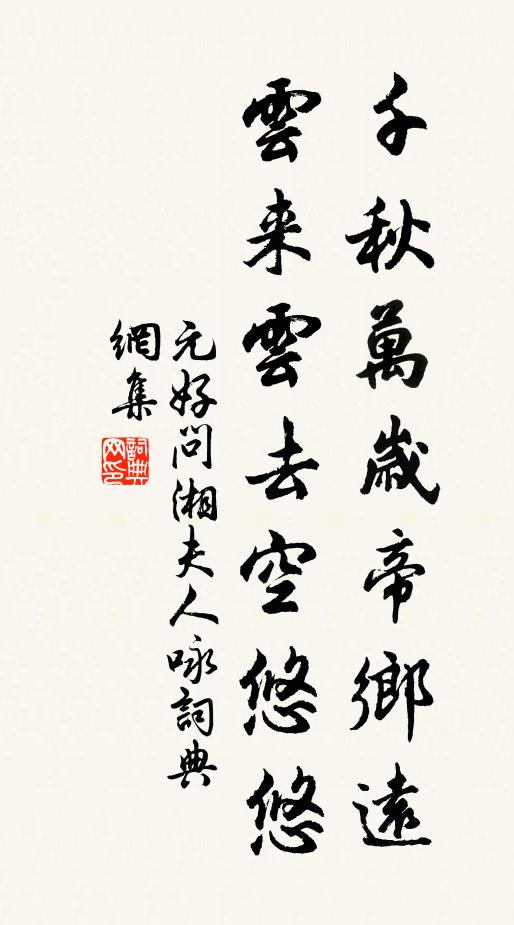 千秋萬歲帝鄉遠
雲来雲去空悠悠
元好問湘夫人咏詞典
網集
詞典
网印